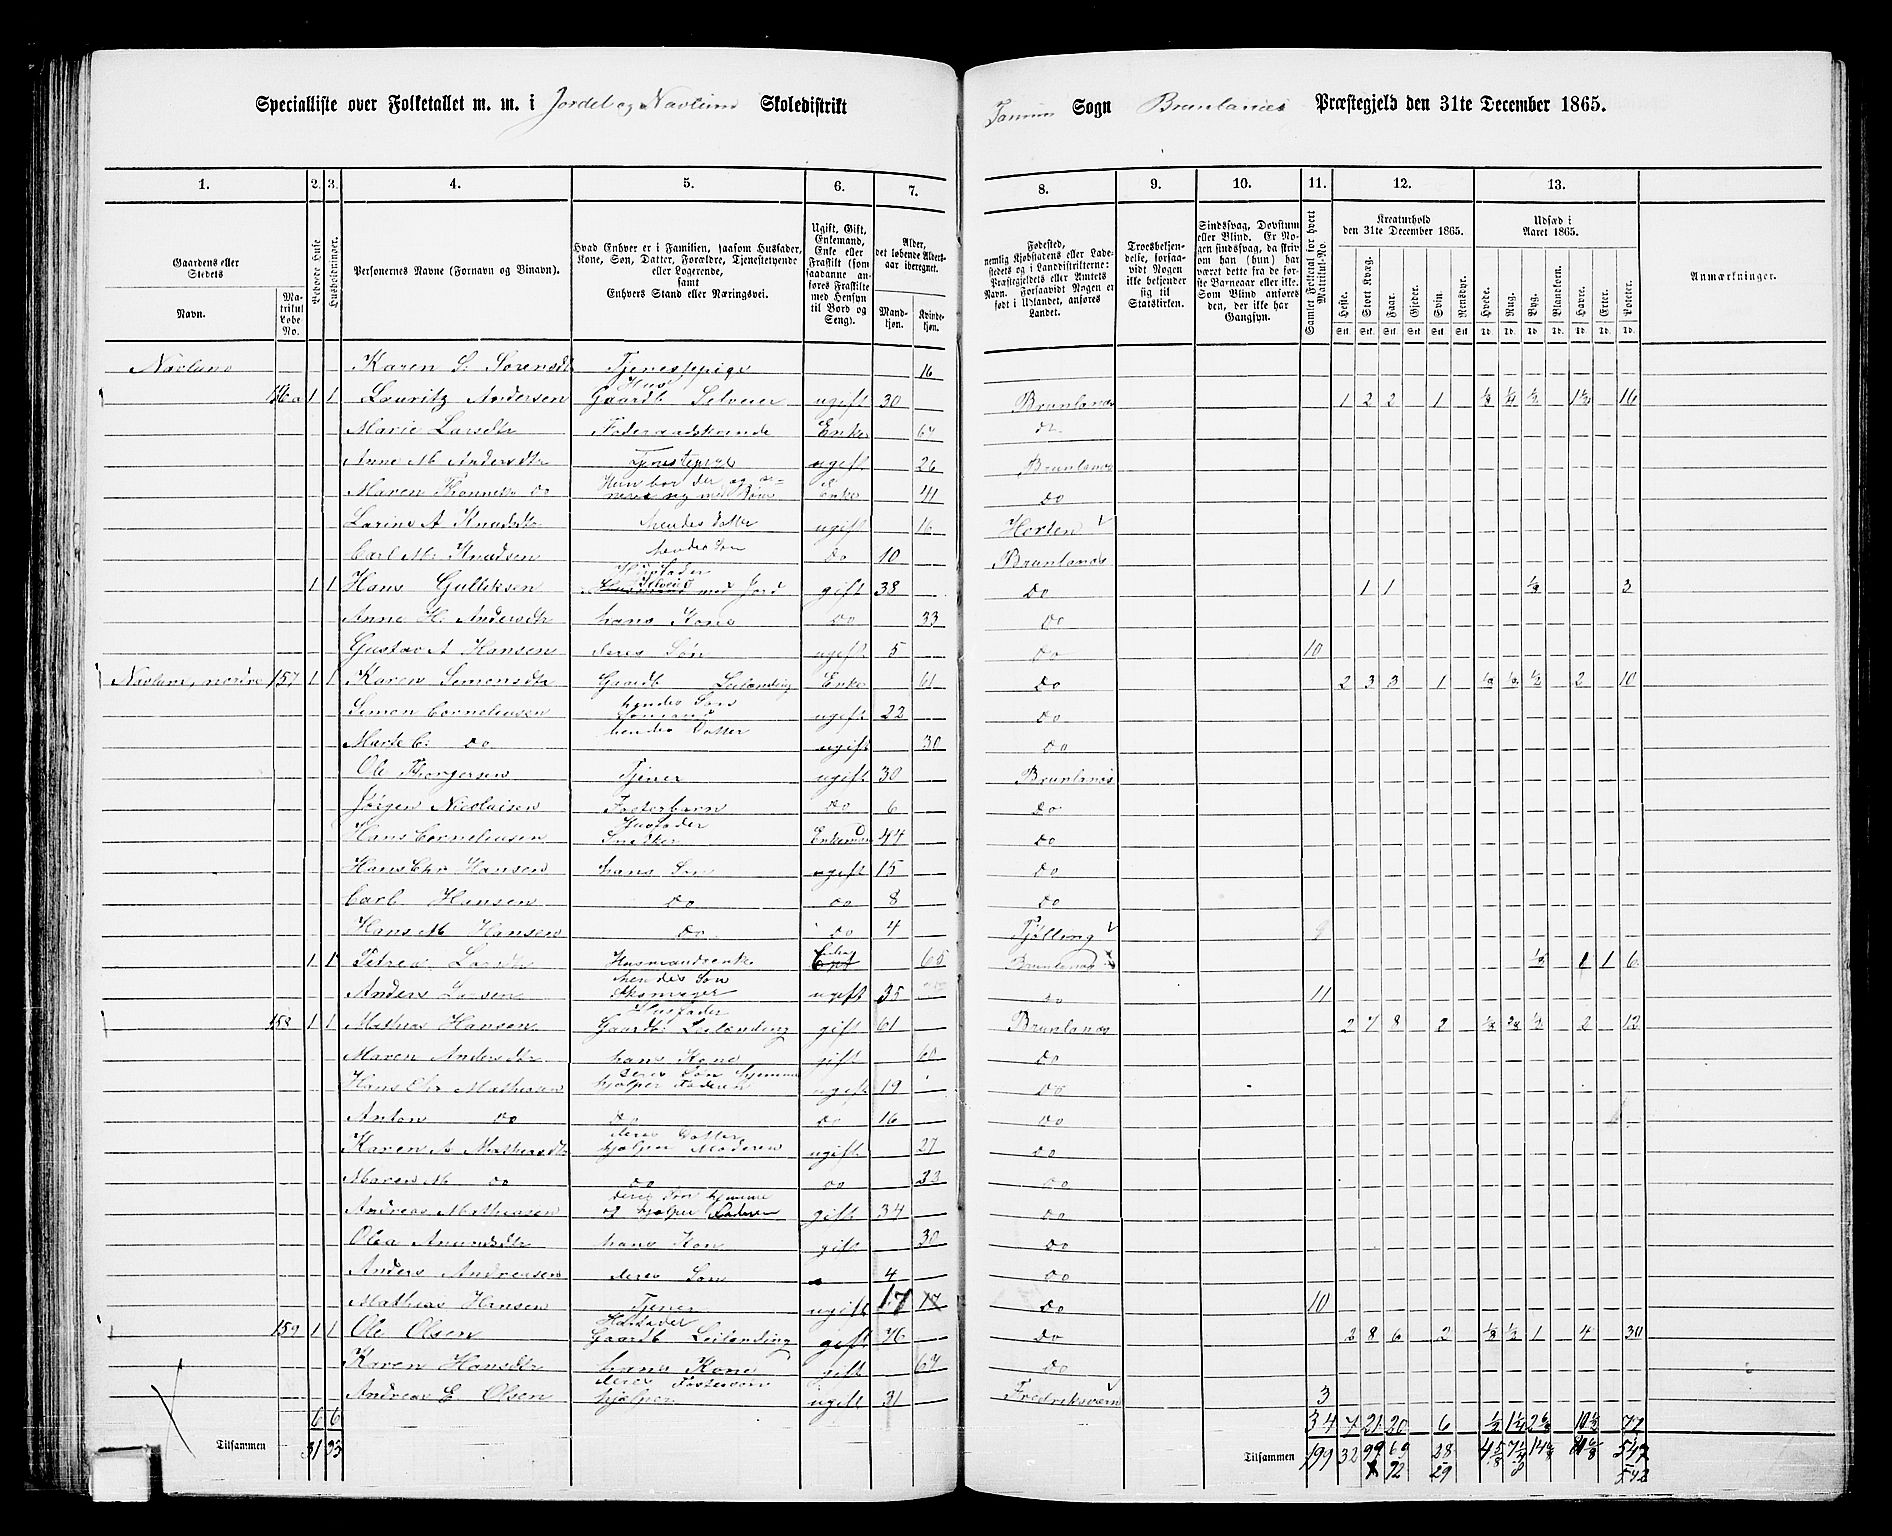 Specialliste over Folketallet m. m. i Jordet og Navlund Skoledistrikt
Sogn Brunlanes Præstegjeld den 31te December 1865.
1. 2. 3. 4. 5. 6. 7. 8. 9. 10. 11. 12. 13.
Gaardens eller Stedets
Navn.
Matrikul Løbe No.
Beboede Huse
Husholdninger.
Personernes Navne (Fornavn og Binavn).
Hvad Enhver er i Familien, saasom Husfader, Kone, Søn, Datter, Forældre, Tjenestetyende eller Logerende, samt Enhvers Stand eller Næringsvei.
Ugift, Gift, Enkemand, Enke eller Fraskilt (som saadanne anføres Fraskilte med Hensyn til Bord og Seng).
Alder, det løbende Aldersaar iberegnet.
Mandkjøn. Kvindekjøn.
Fødested, nemlig Kjøbstadens eller Ladestedets og i Landdistrikterne: Præstegjeldets eller Amtets Navn. Forsaavidt Nogen er født i Udlandet, anføres Landet.
Troesbekjendelse, forsaavidt Nogen ikke bekjender sig til Statskirken.
Sindssvag, Døvstum eller Blind. Er Nogen sindssvag, da skrives om han (hun) har været dette fra de første Barneaar eller ikke. Som Blind anføres den, der ikke har Gangsyn.
Samlet Folketal for hvert Matrikul-No.
Kreaturhold den 31te December 1865.
Heste. Stort Kvæg. Faar. Gjeder. Svin. Rensdyr.
Udsæd i Aaret 1865.
Hvede. Rug. Byg. Blandkorn. Havre. Erter. Poteter.
Anmærkninger.
Navlund Karen S. Sørensdtr Tjenestepige 16
156a 1 1 Lauritz Andersen Huus Gaardb Selveier ugift 30 Brunlanes 1 2 2 1 16
Marie Larsdtr Føderaadskvinde Enke 67 do
Anne M. Andersdtr Tjenstepige ugift 26 Brunlanes
Maren do Enke 41 do
A Knudsdtr hendes Datter ugift 16 Horten
Carl M. Knudsen hendes Søn do 10 Brunlanes
1 1 Hans Gulliksen Husfader Selveier med Jord gift 38 do 1 1 3
Anne H. Andersdtr hans Kone do 33 do
Gustav A Hansen deres Søn ugift 5 do 10
Navlund, nordre 157 1 1 Karen Simonsdtr Gaardb Leilænding Enke 61 do 2 3 3 1 2 10
Simon Corneliusen hendes Søn ugift 22 do
Marte C. do hendes Datter ugift 30 do
Ole Thorgersen Tjener ugift 30 Brunlanes
Jørgen Nicolaisen Fosterbarn do 6 do
Hans Corneliusen Husfader Snedker Enkemand 44 do
Hans Chr Hansen hans Søn ugift 15 do
Carl Hansen do do 8 do
Hans M Hansen do do 4 Tjølling 9
1 1 Petrea Larsdtr Husmandsenke Enke 65 Brunlanes 1 1 6
Anders Larsen hendes Søn Skomager ugift 35 do 11
158 1 1 Mathias Hansen Husfader Gaardb Leilænding gift 61 Brunlanes 2 7 8 2 2 12
Maren Andersdtr hans Kone gift 60 do
Hans Chr Mathiasen deres Søn hjemme hjælper Faderen ugift 19 do
Anton do do do 16 do
Karen A Mathiasdtr deres Datter hjælper Moderen ugift 27 do
Maren M do do do do
Andreas Mathiasen deres Søn hjemme og hjælper Faderen gift 34 do
Olea Amundsdtr hans Kon gift 30 do
Anders Andreasen deres Søn 4 do
Mathias Hansen Tjener ugift 17 17 do 10
159 1 1 Ole Olsen Husfader Gaardb Leilænding gift 76 do 2 8 6 2 1 4 30
Karen Hansdtr hans Kone gift 67 do
Andreas E Olsen deres Fostersøn hjælper ugift 31 Fredriksværn 3
6 6 34 7 21 20 6 77
Tilsammen 31 33 Tilsammen 199 32 99 69 28 547
72 29 542